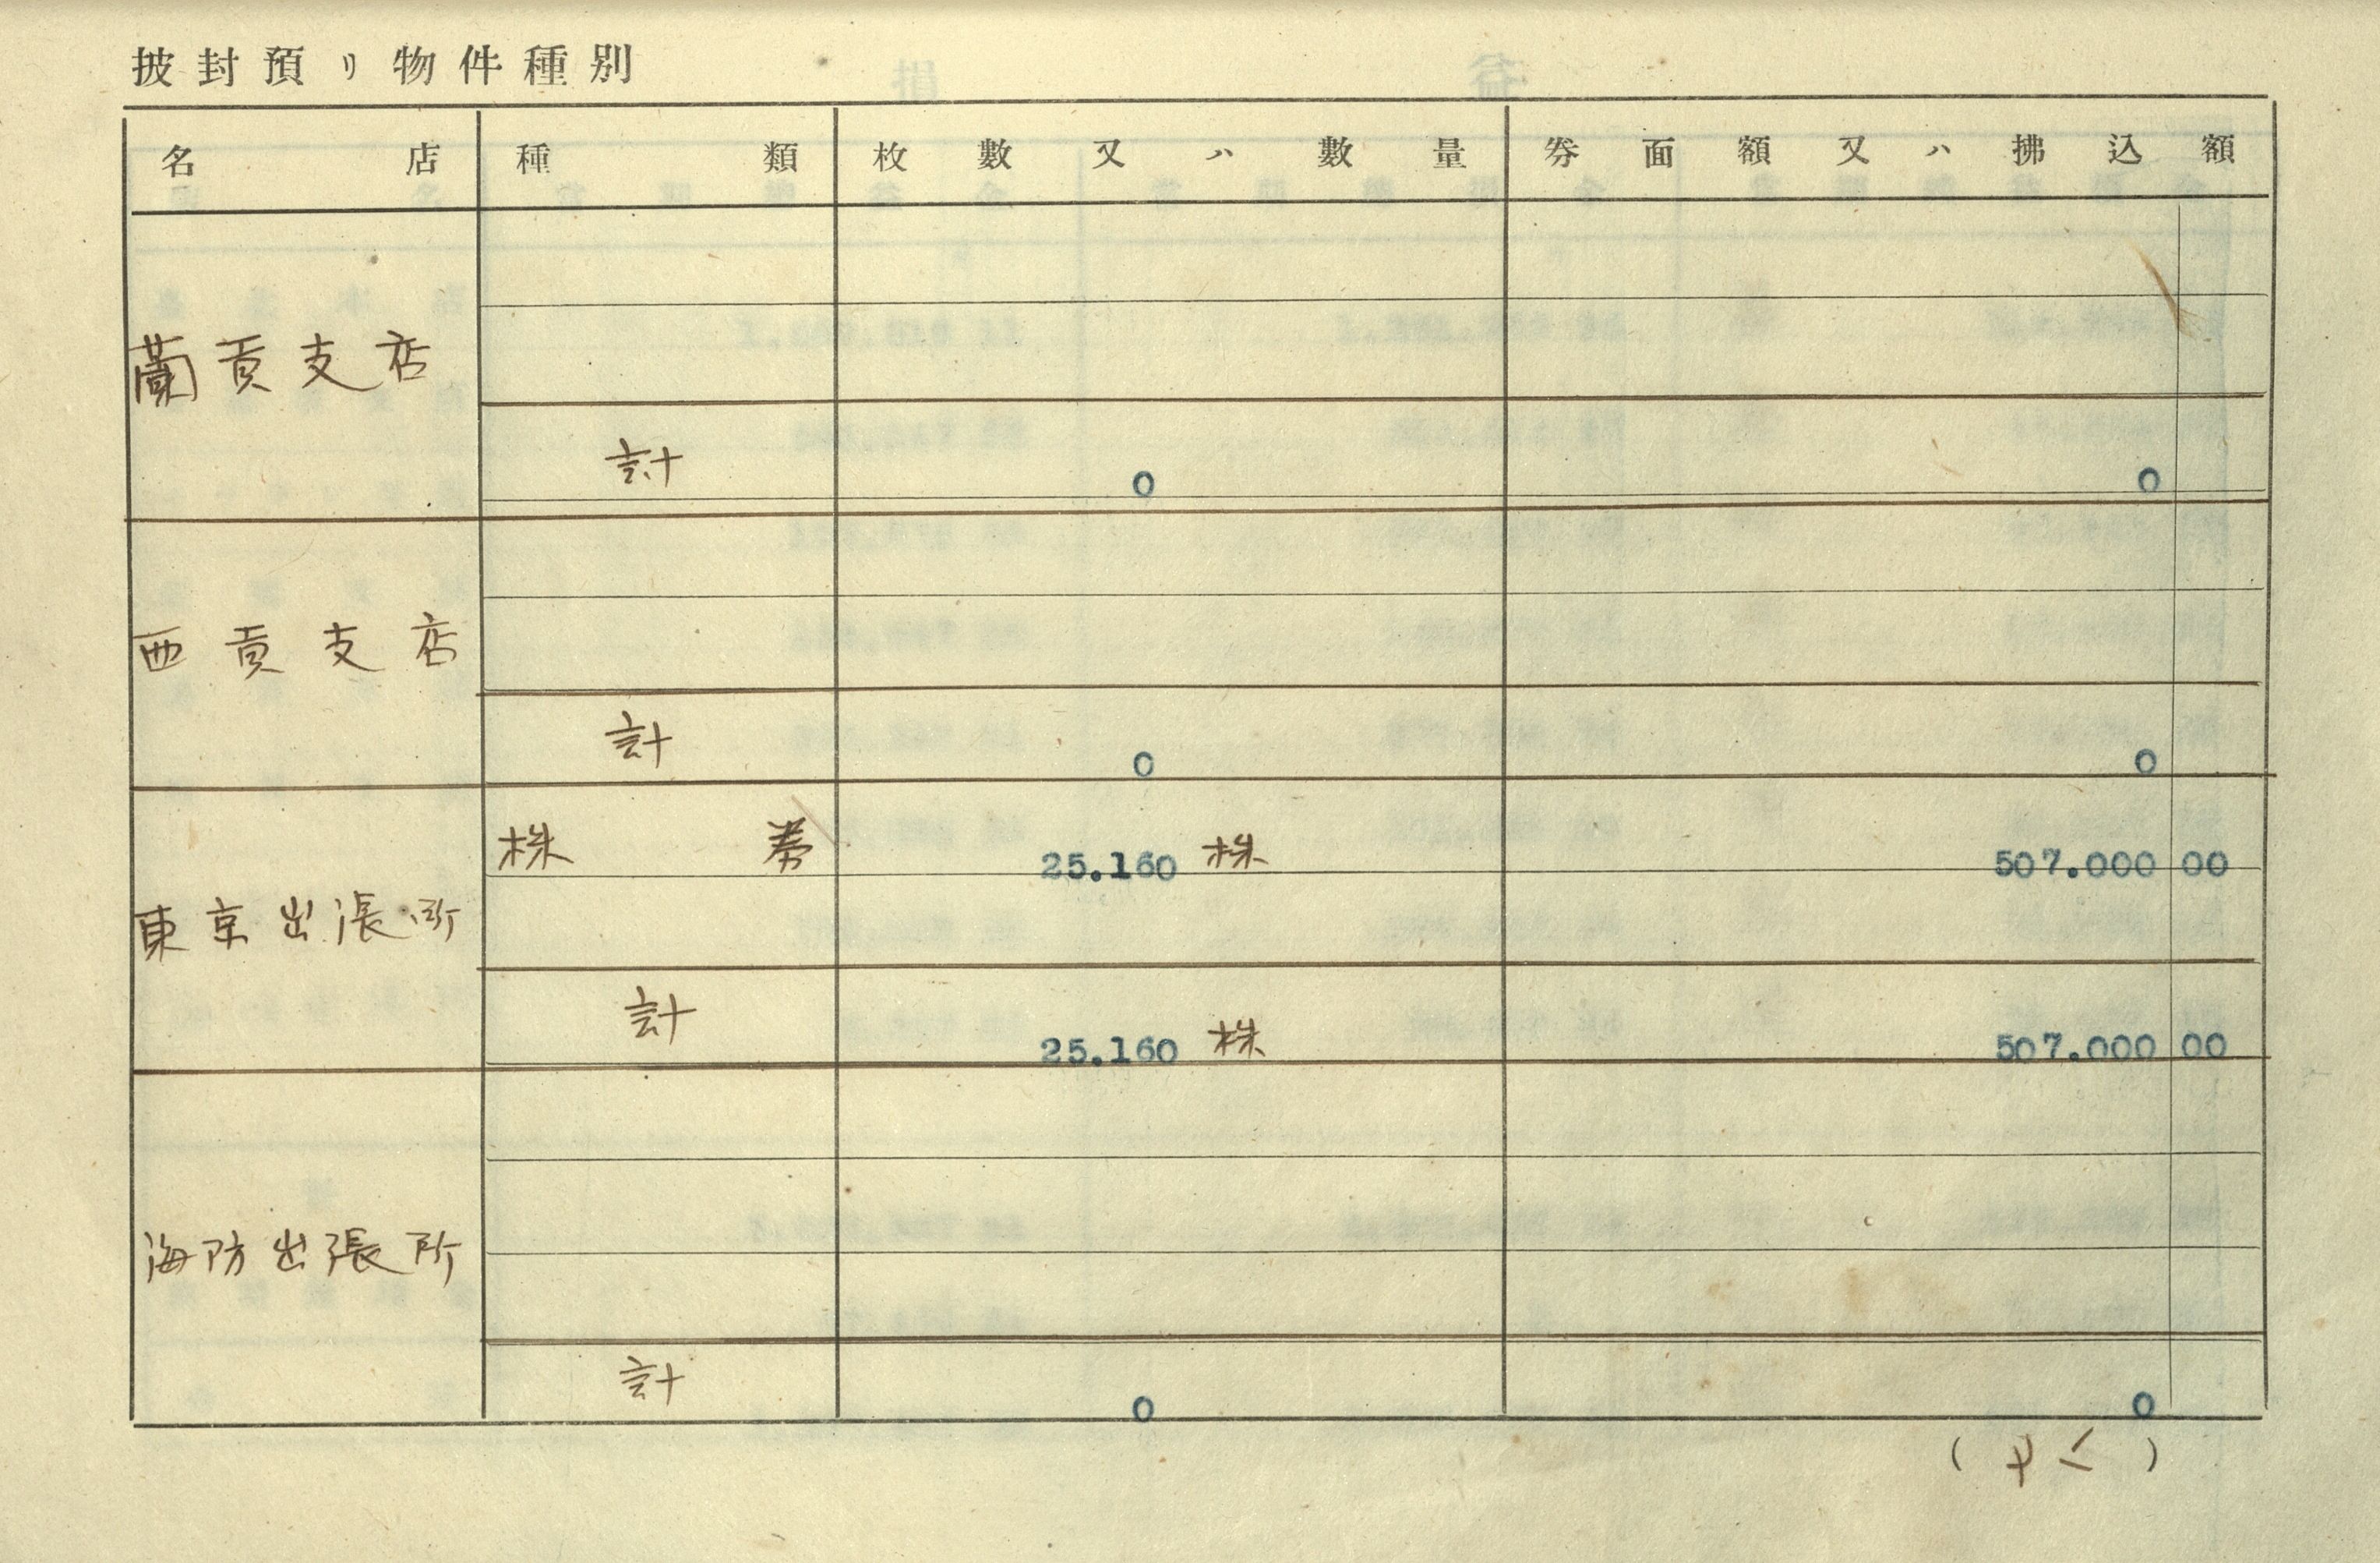 披封預リ物件種別
名店 種類 枚數又ハ數量 券面額又ハ拂込額
蘭貢支店
計 0 0
西貢支店
計 0 0
東京出張所
株券 25.160 株 507.000 00
計 25.160 株 507.000 00
海防出張所
計 0 0